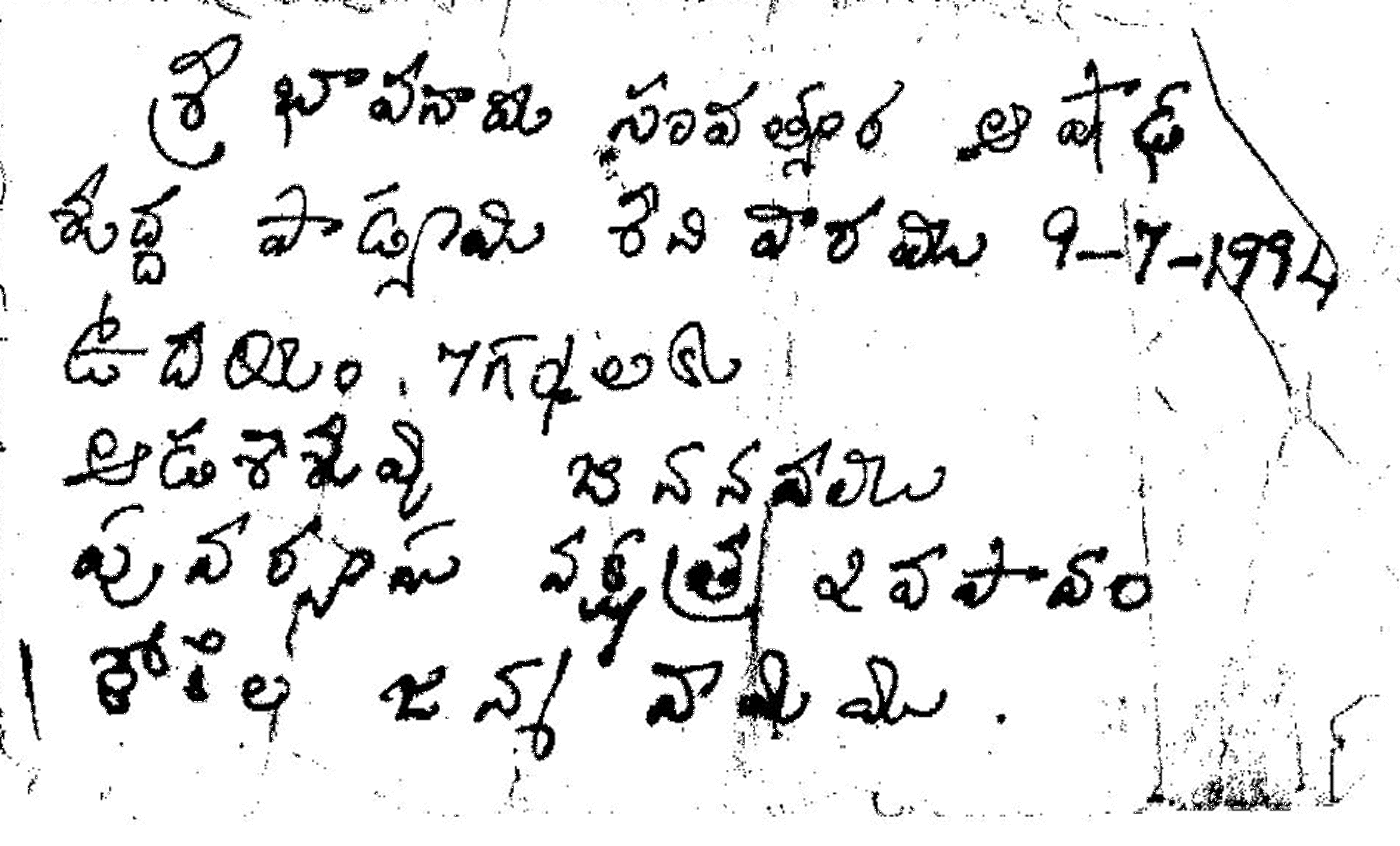 శ్రీ భావనామ సంవత్సర ఆషాఢ
శుద్ధ పాడ్యమి శనివారము 9-7-1994
ఉదయం. 7గంలకు
ఆడశిశువు జననము
పునర్వసు నక్షత్ర 2వపాదం
జన్మ నామము.